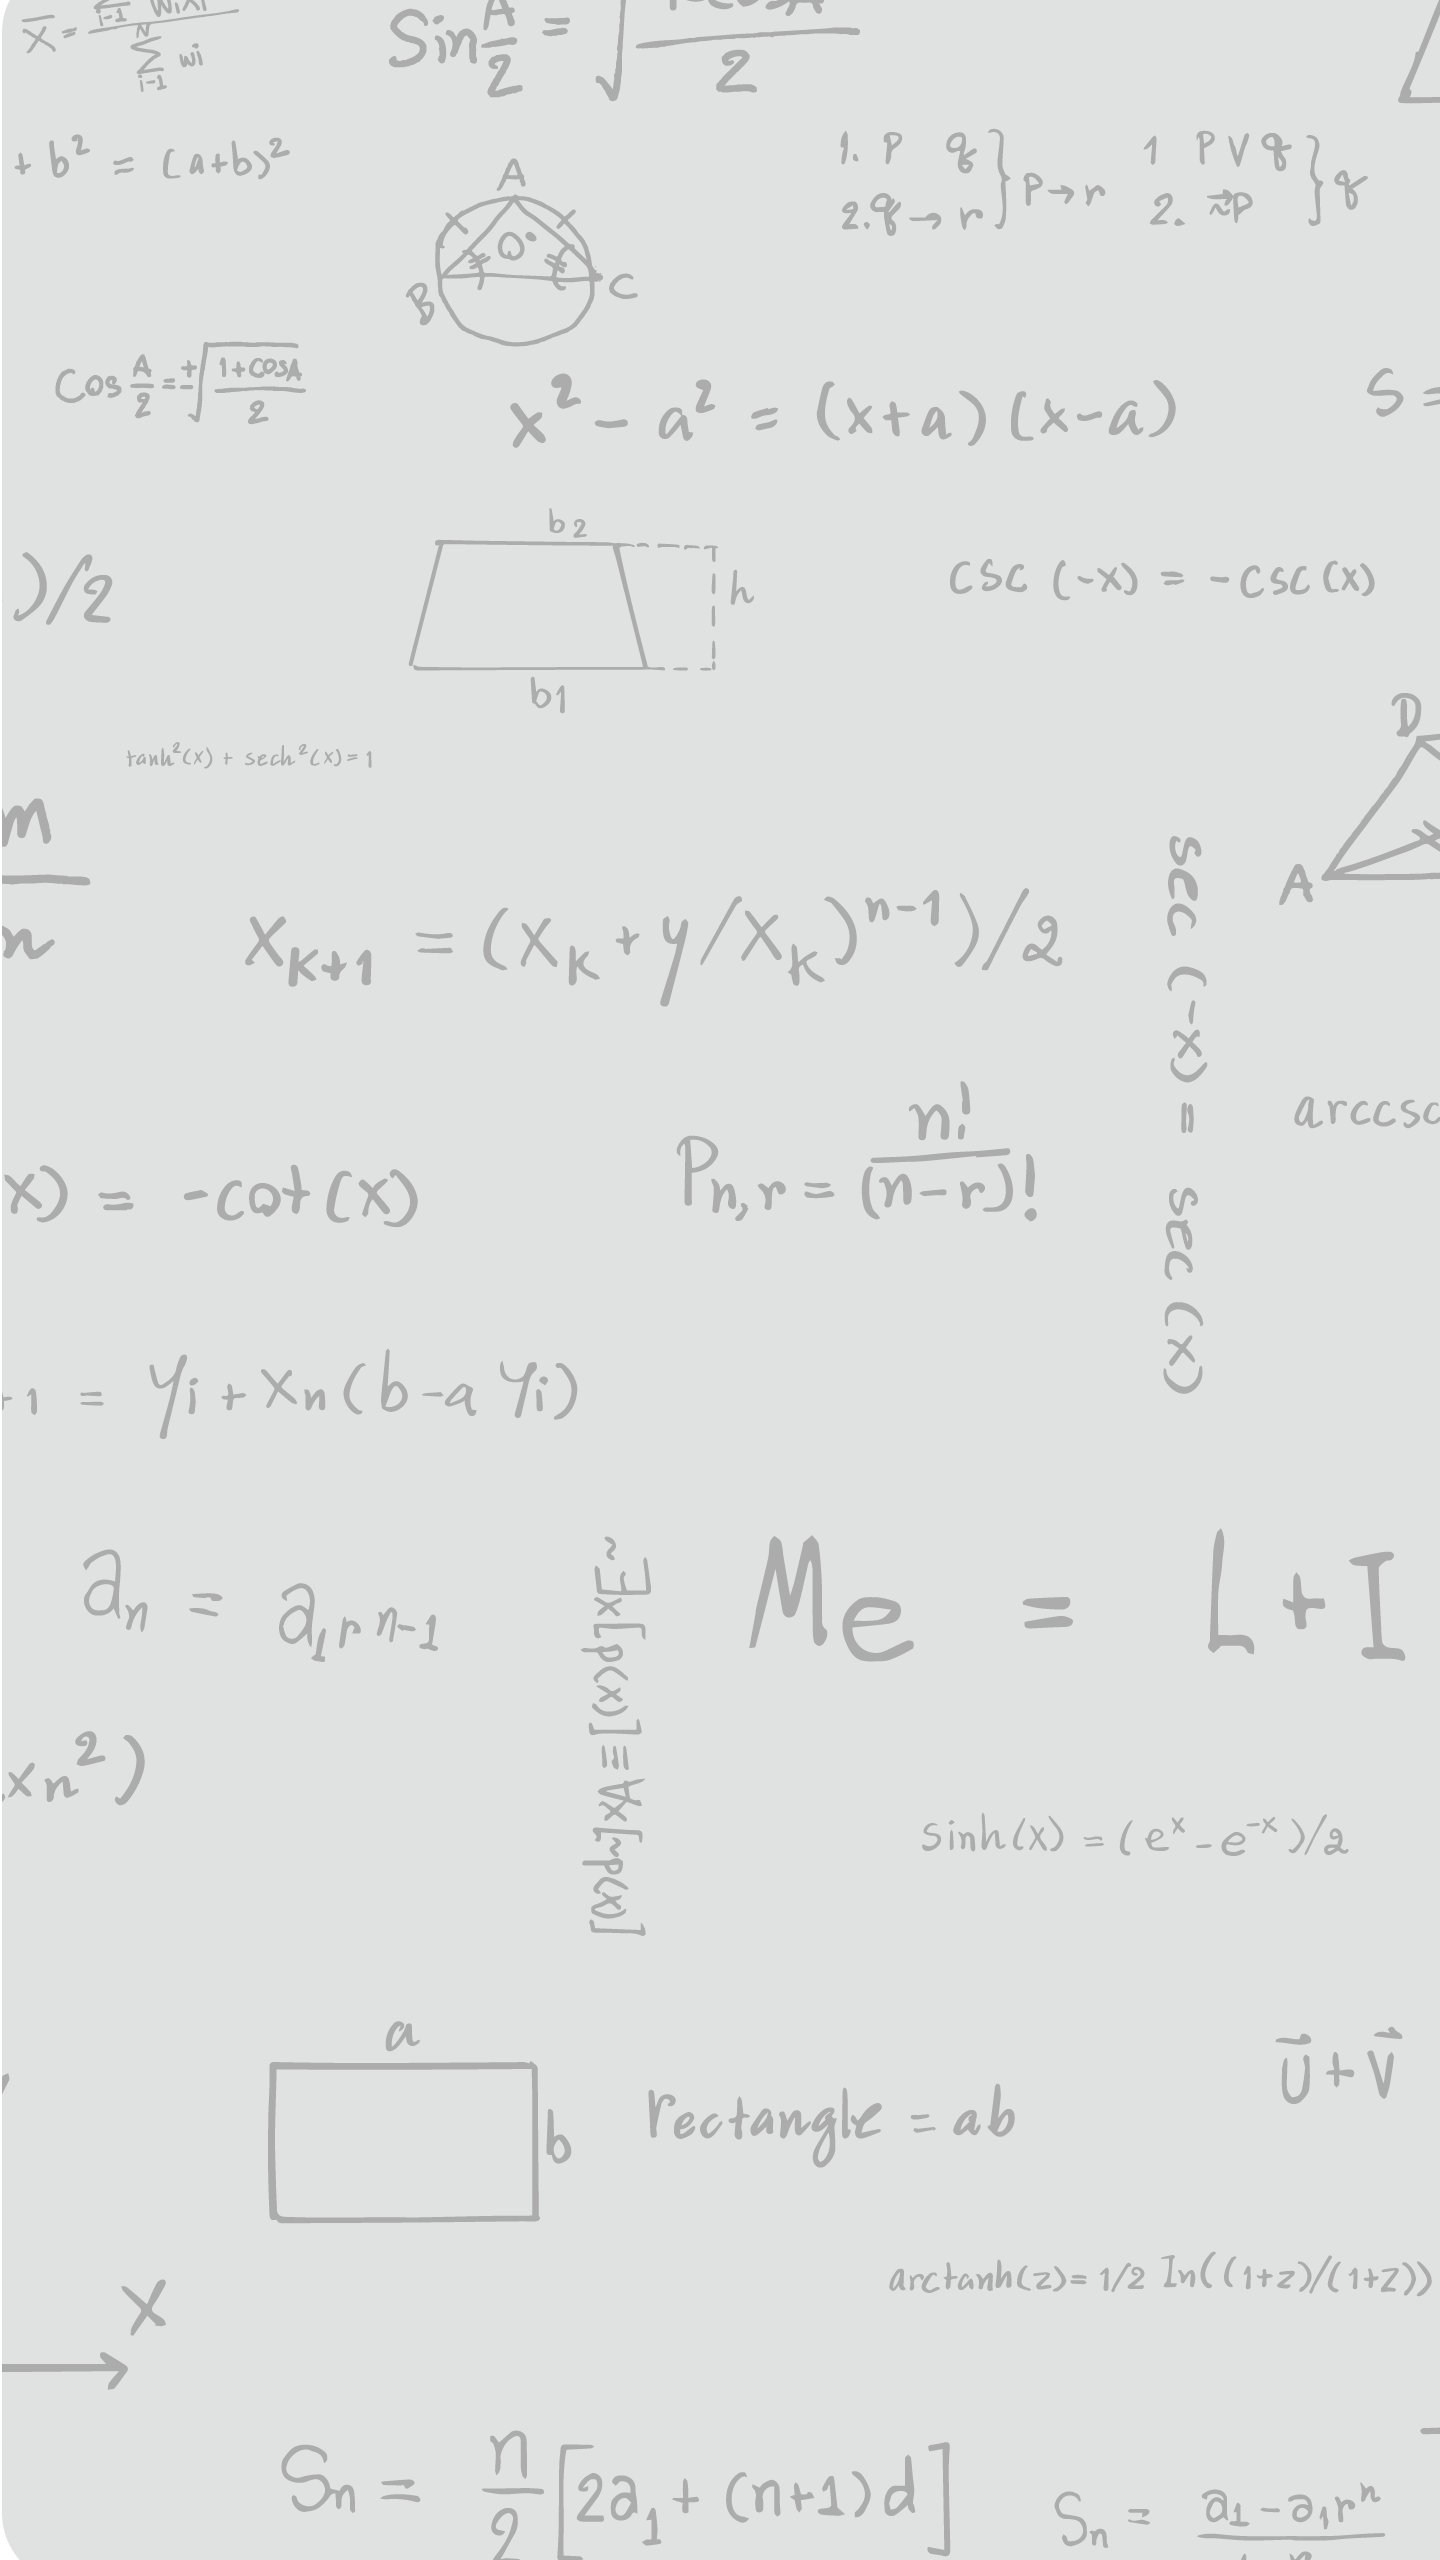 X̄ = Σ i-1 wixi / Σ N i-1 wi
Sin A/2 = √ 1-cosA / 2
+ b² = (a+b)²
1. P q } P→r
2. q→r
1 P V q } q
2. ~P
A
O
B
C
Cos A/2 = ±√ 1+cosA / 2
x² - a² = (x+a)(x-a)
S =
b2
)/2
h
csc (-x) = -csc(x)
b1
D
tanh²(x) + sech²(x)=1
m
n
A
X k+1 = (X k + y/X k)ⁿ⁻¹)/2
sec (-x) = sec (x)
arccsc
x) = -cot(x)
P n,r = n! / (n-r)!
+1 = yi + xn(b-a yi)
an = a1 r n-1
~Ǝx[p(x)]≡∀x[~p(x)]
Me = L+I
xn²)
sinh(x) = (eˣ - e⁻ˣ)/2
a
b
rectangle = ab
U⃗ + V⃗
arctanh(z)= 1/2 In((1+z)/(1+z))
X
Sn = n/2 [2a1 + (n+1)d]
Sn = a1 - a1rⁿ